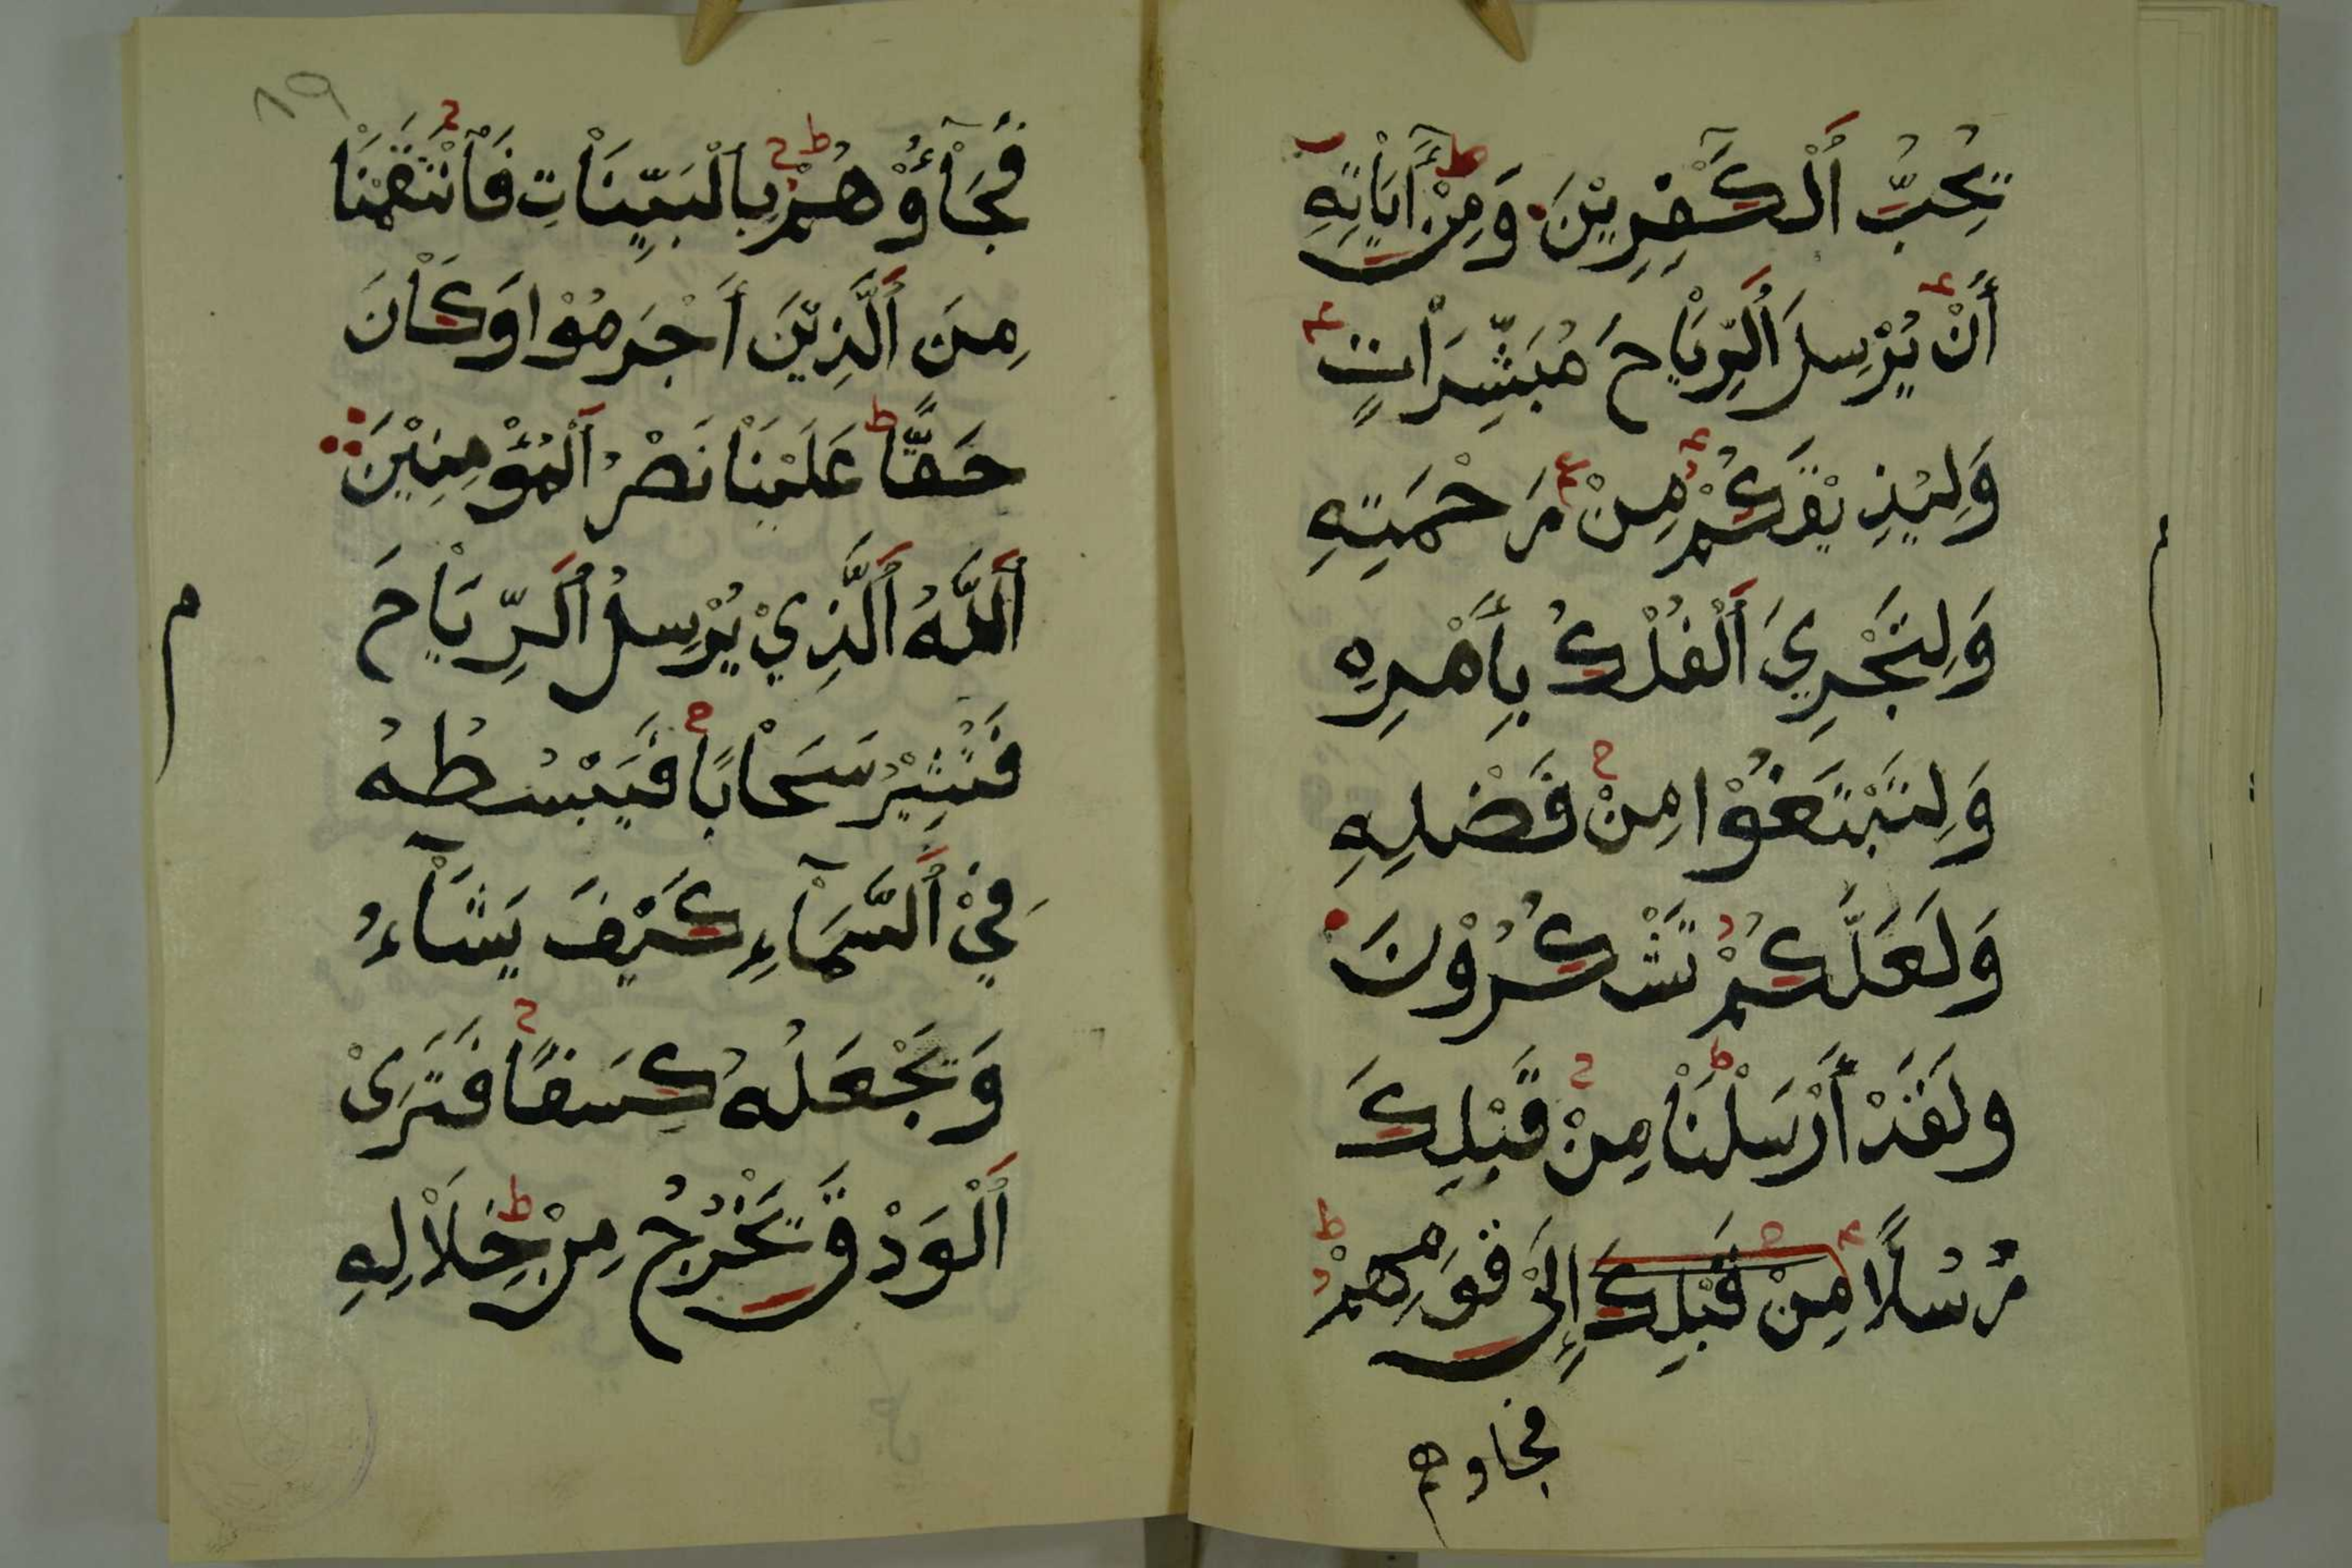 يُحِبُّ ٱلْكَٰفِرِيْنَ وَمِنْ أَيَاتِهِ
أَنْ يُرْسِلَ ٱلرِّيَاحَ مُبَشِّرَاتٍ
وَلِيُذِيْقَكُمْ مِنْ رَحْمَتِهِ
وَلِتَجْرِيَ ٱلْفُلْكُ بِأَمْرِهِ
وَلِتَبْتَغُوْا مِنْ فَضْلِهِ
وَلَعَلَّكُمْ تَشْكُرُوْنَ
ولَقَدْ أَرْسَلْنَا مِنْ قَبْلِكَ
رُسُلًا مِنْ قَبْلِكَ إِلَىٰ قَوْمِهِمْ
فجاوهم
١٩
فَجَآؤُوْهُمْ بِالْبَيِّنَاتِ فَٱنْتَقَمْنَا
مِنَ ٱلَّذِيْنَ أَجْرَمُوْا وَكَانَ
حَقًّا عَلَيْنَا نَصْرُ ٱلْمُؤْمِنِيْنَ
ٱللَّهُ ٱلَّذِيْ يُرْسِلُ ٱلرِّيَاحَ
فَتُثِيْرُ سَحَابًا فَيَبْسُطُهُ
فِيْ ٱلسَّمَآءِ كَيْفَ يَشَآءُ
وَيَجْعَلُهُ كِسَفًا فَتَرَىْ
ٱلْوَدْقَ يَخْرُجُ مِنْ خِلَالِهِ
م
م